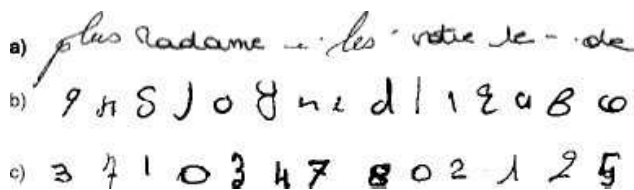 a) plus Madame les votre le de
b) 9 n S J o Y n e d l 1 a B
c) 3 7 1 0 3 4 7 8 0 2 1 2 5